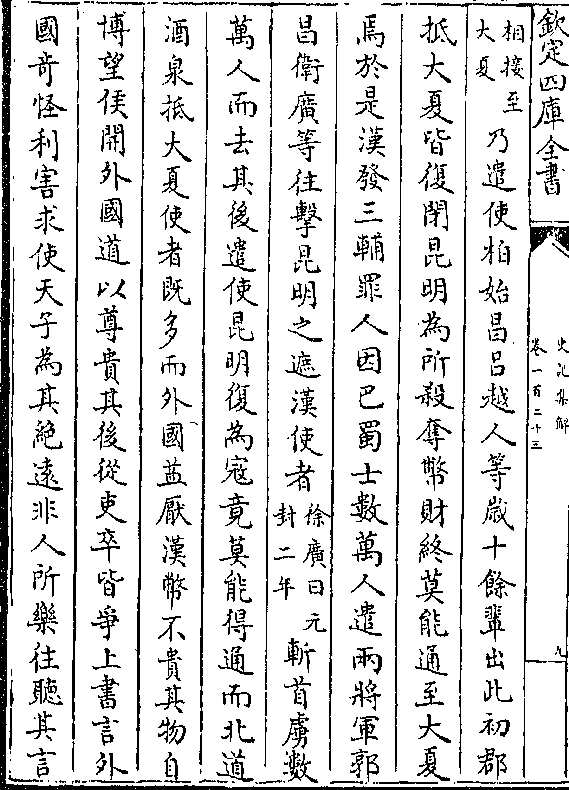 欽定四庫全書
史記集解
卷一百二十三
九
相接至
大夏
乃遣使柏始昌呂越人等歲十餘輩出此初郡
抵大夏皆復閉昆明為所殺奪幣財終莫能通至大夏
焉於是漢發三輔罪人因巴蜀士數萬人遣兩將軍郭
昌衛廣等往擊昆明之遮漢使者
徐廣曰元
封二年
斬首虜數
萬人而去其後遣使昆明復為寇竟莫能得通而北道
酒泉抵大夏使者既多而外國益厭漢幣不貴其物自
博望侯開外國道以尊貴其後從吏卒皆爭上書言外
國奇怪利害求使天子為其絶遠非人所樂往聽其言